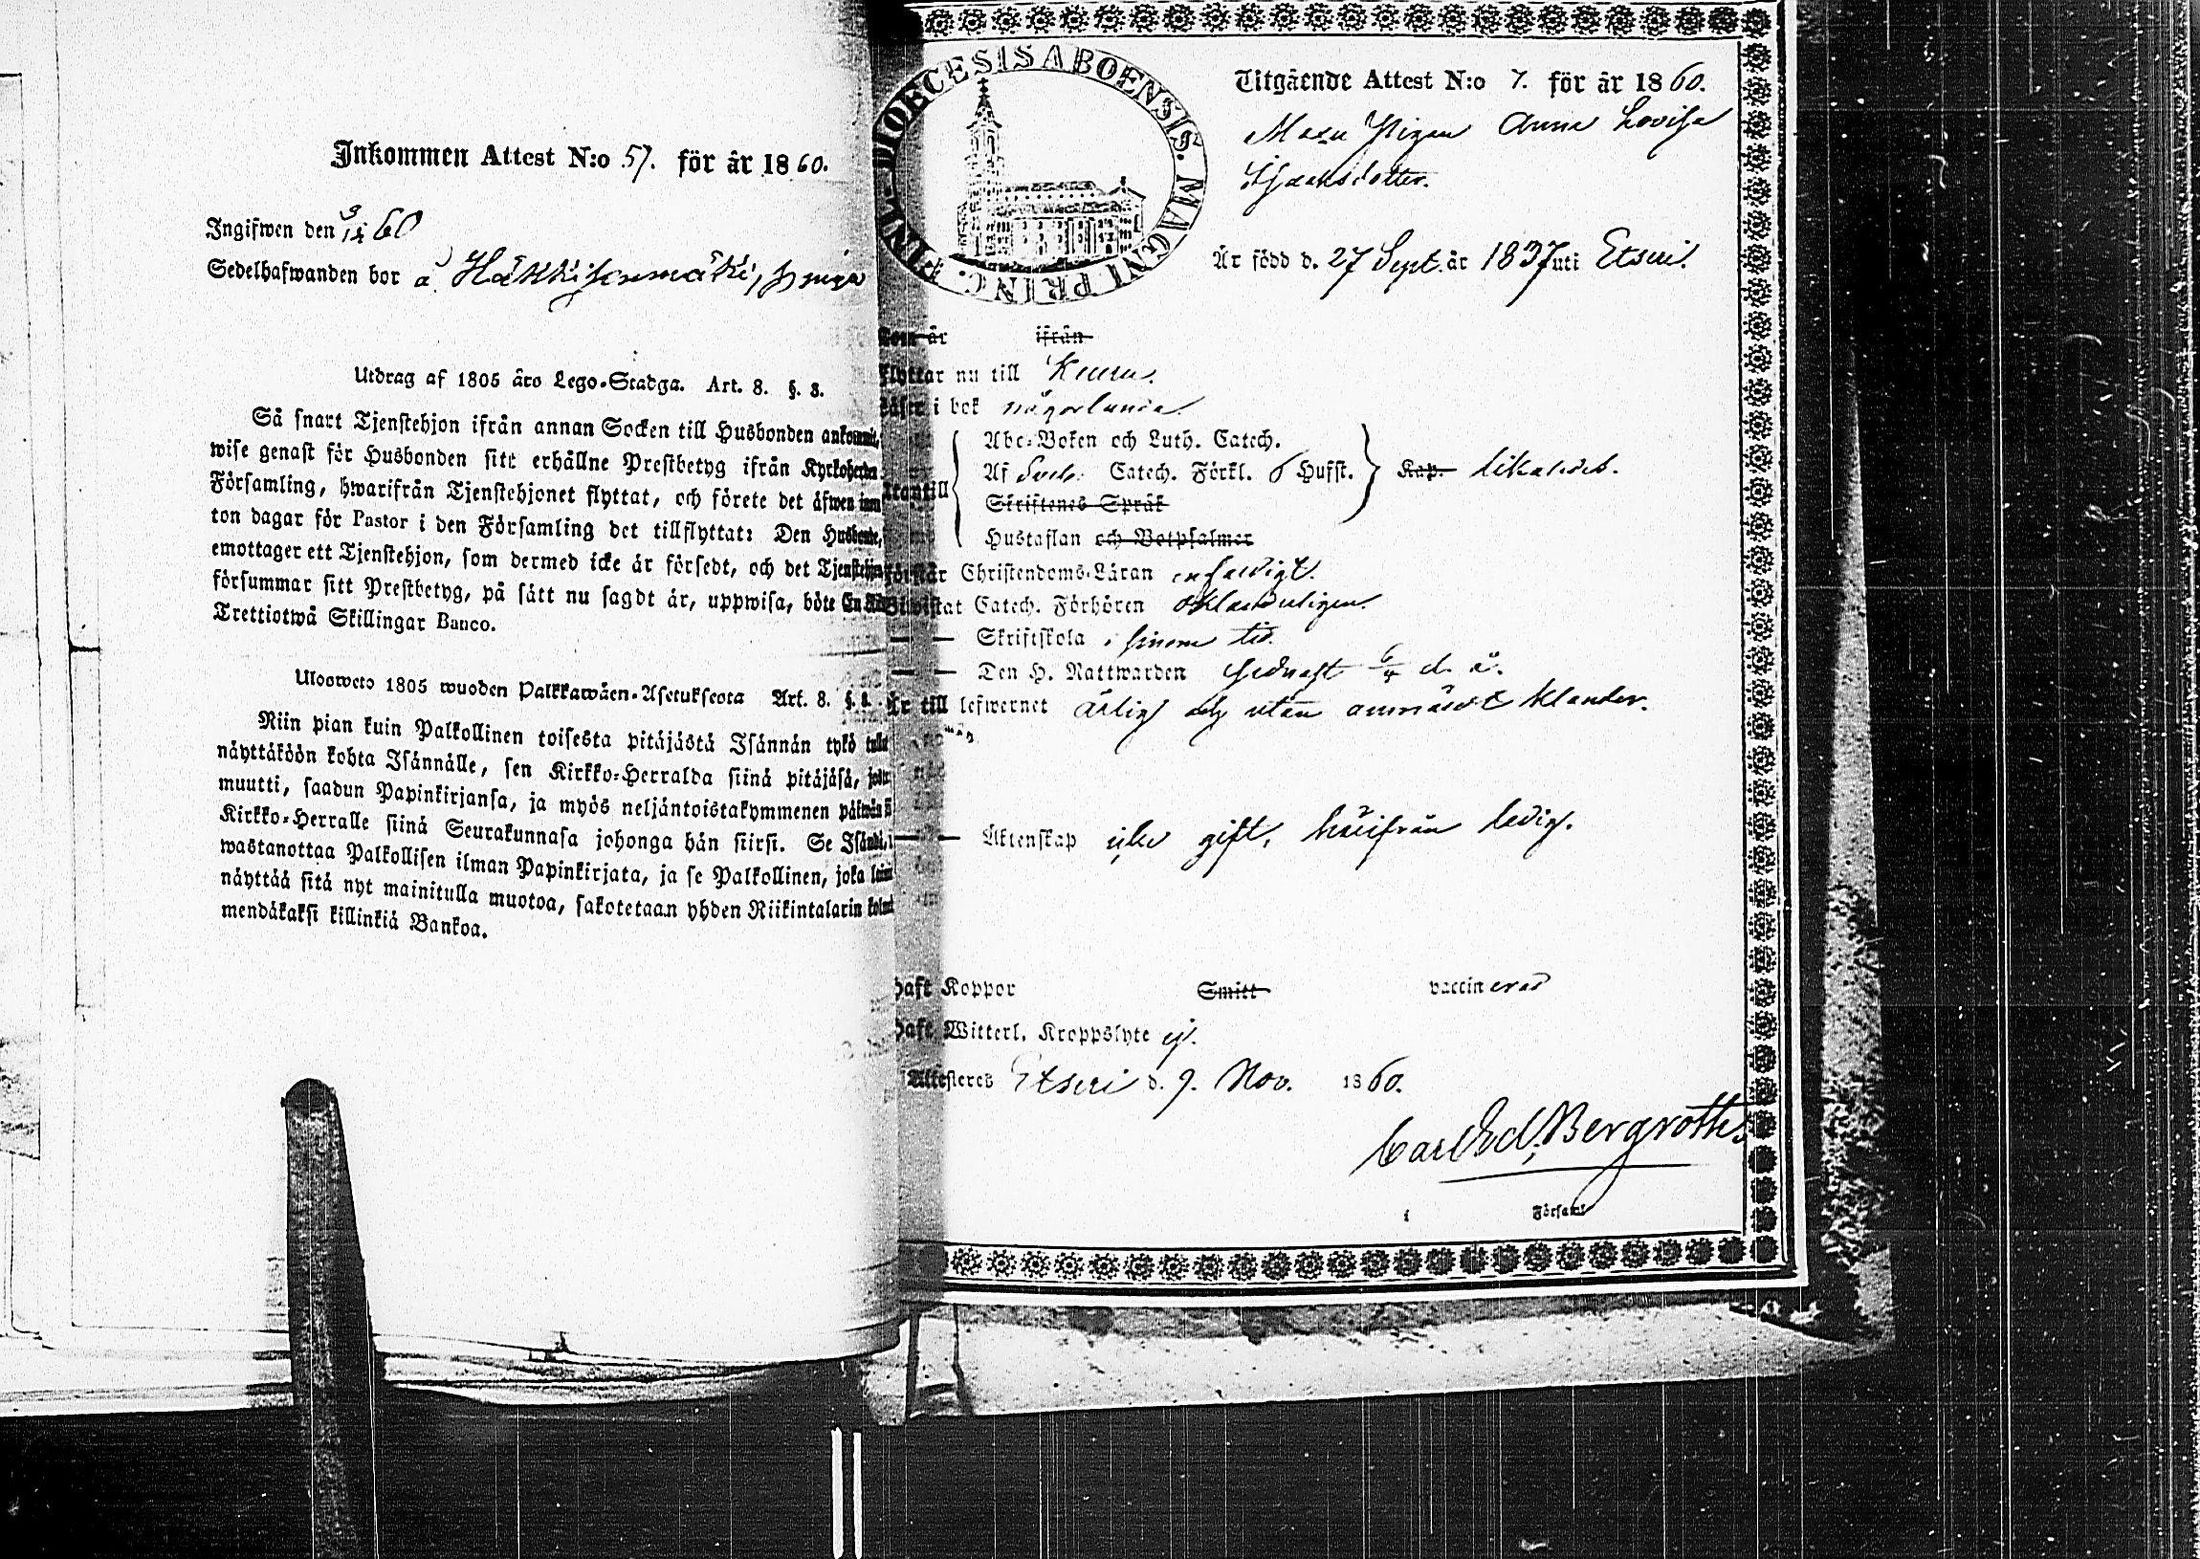 Inkommen Attest N:o 57. för år 1860.
Ingifwen den 9/12 60
Sedelhafwanden bor å Häkkisenmäki, piga
Utdrag af 1805 års Lego-Stadga. Art. 8. §. 8.
Så snart Tjenstehjon ifrån annan Socken till Husbonden
wise genast för Husbonden sitt erhållne Prestbetyg ifrån
Församling, hwarifrån Tjenstehjonet flyttat, och förete det äfwen
ton dagar för Pastor i den Församling det tillflyttat: Den
emottager ett Tjenstehjon, som dermed icke är försedt, och det
försummar sitt Prestbetyg, på sätt nu sagdt är, uppwisa, böte En
Trettiotwå Skillingar Banco.
Ulosweto 1805 wuoden Palkkawäen-Asetuksesta Art. 8. §. 8.
Niin pian kuin Palkollinen toisesta pitäjästä Isännän tykö
näyttäköön kohta Isännälle, sen Kirkko-Herralda siinä pitäjäsä,
muutti, saadun Papinkirjansa, ja myös neljäntoistakymmenen
Kirkko-Herralle siinä Seurakunnasa johonga hän siirsi. Se
wastanottaa Palkollisen ilman Papinkirjata, ja se Palkollinen, joka
näyttää sitä nyt mainitulla muotoa, sakotetaan yhden Riikintalarin
mendäkaksi killinkiä Bankoa.
DIOECESIS ABOENSIS. MAGNI PRINC. FINL.
Utgående Attest N:o 7. för år 1860.
Pigan Anna Lovisa
Isaaksdotter.
Är född d. 27 Sept. år 1837 uti Etseri.
Som är ifrån
Flyttar nu till Keuru.
Läser i bok någorlunda.
Abc-Boken och Luth. Catech.
Af Sveb. Catech. Förkl. 6 Hufst. Kap. likaledes.
Utantill
Skriftenes Språk
Hustaflan och Botpsalmer
Förstår Christendoms-Läran enfaldigt.
Biwistat Catech. Förhören oklanderligen.
— — Skriftskola i sinom tid.
— — Den H. Nattwarden sednast d. å.
Är till lefwernet ärlig och utan anmärkt klander.
— — Äktenskap icke gift, härifrån ledig.
haft Koppor Smitt vaccinerad
haft Witterl. Kroppslyte ej.
Attesteres Etseri d. 9. Nov. 1860.
Carl Ed. Bergroth.
i Förslaml